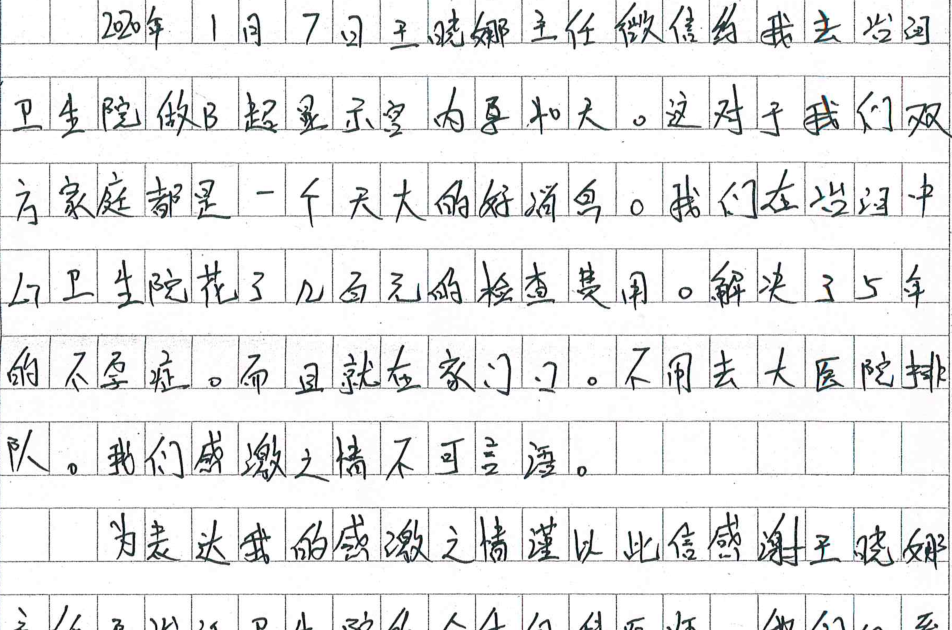 2020年1月7日王晓娜主任微信约我去岩泪
卫生院做B超显示宫内孕40天。这对于我们双
方家庭都是一个天大的好消息。我们在中
心卫生院花了几百元的检查费用。解决了5年
的不孕症。而且就在家门口。不用去大医院排
队。我们感激之情不可言语。
为表达我的感激之情谨以此信感谢王晓娜